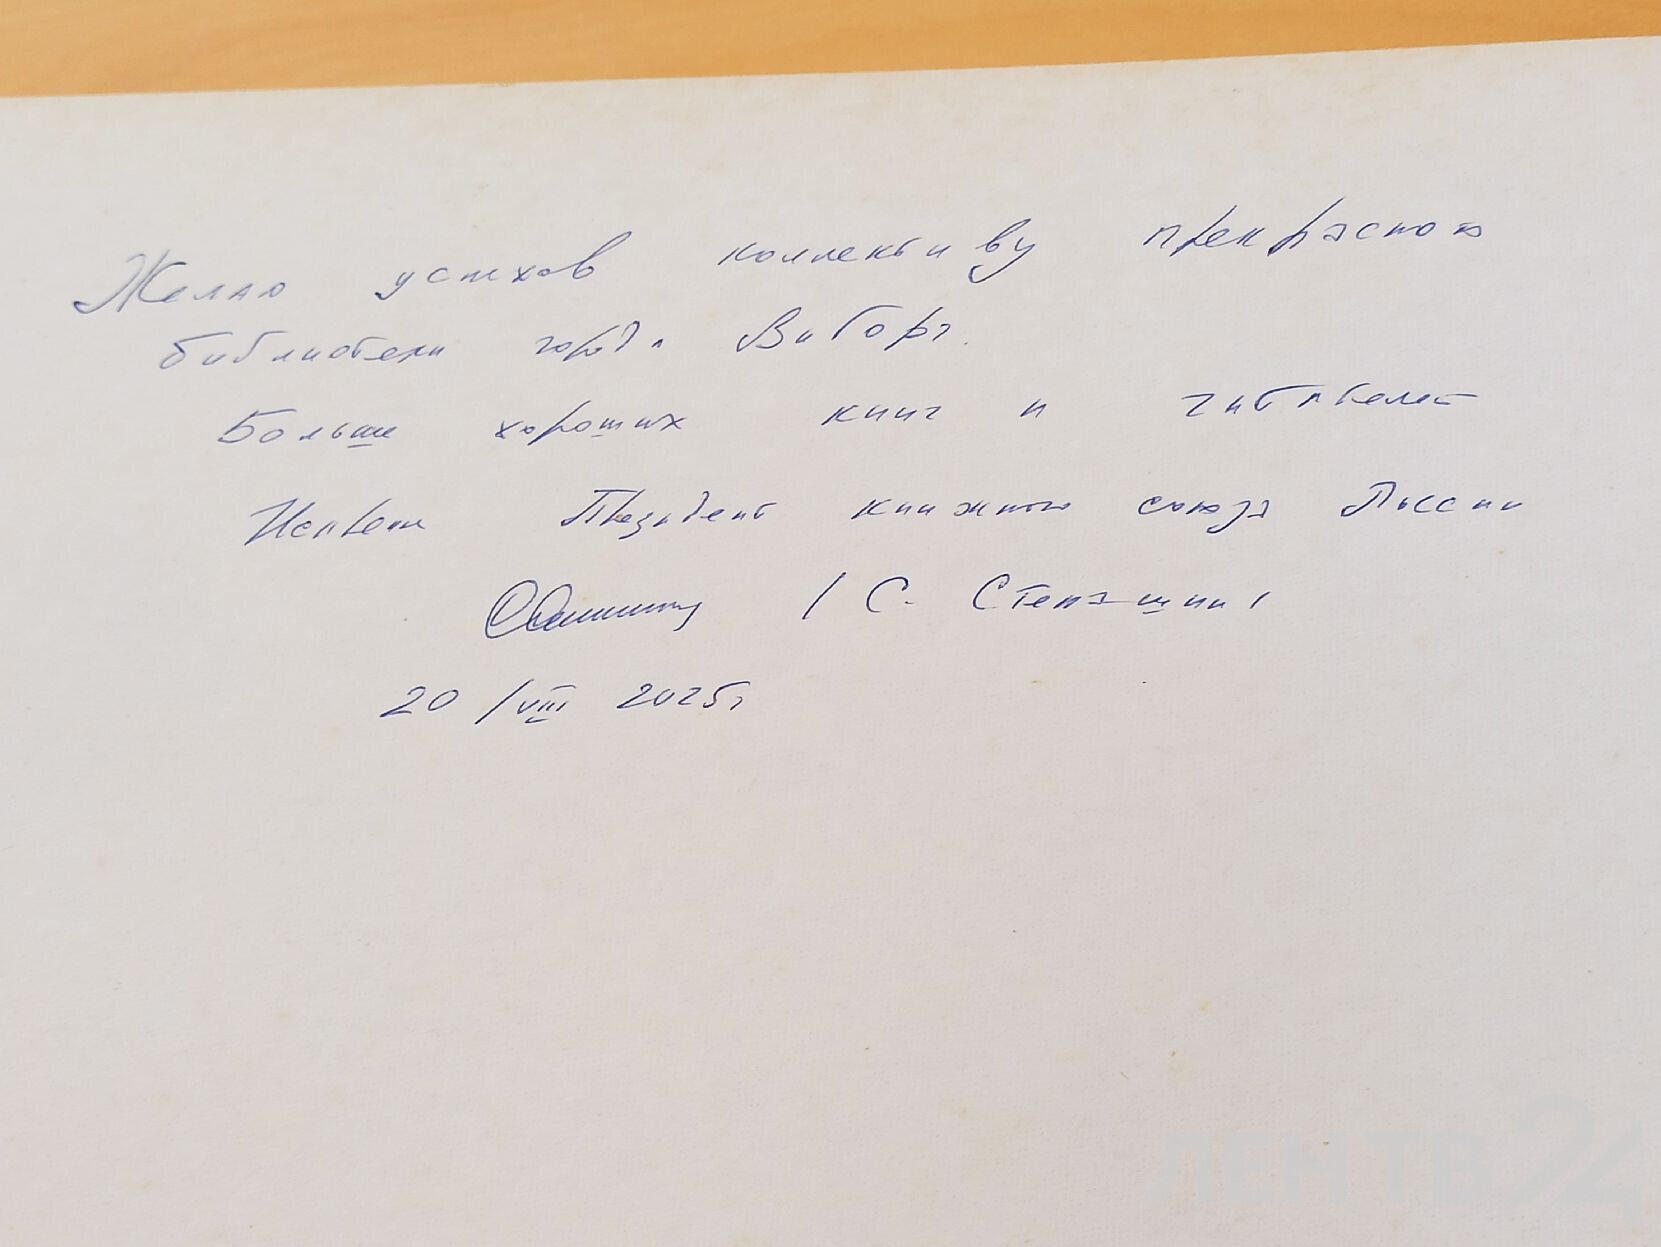 Желаю успехов коллективу прекрасной
библиотеки города Выборга.
Больше хороших книг и читателей
Президент книжного союза России
/ С. Степашин /
20 /VIII 2025г
ЛЕНТВ24